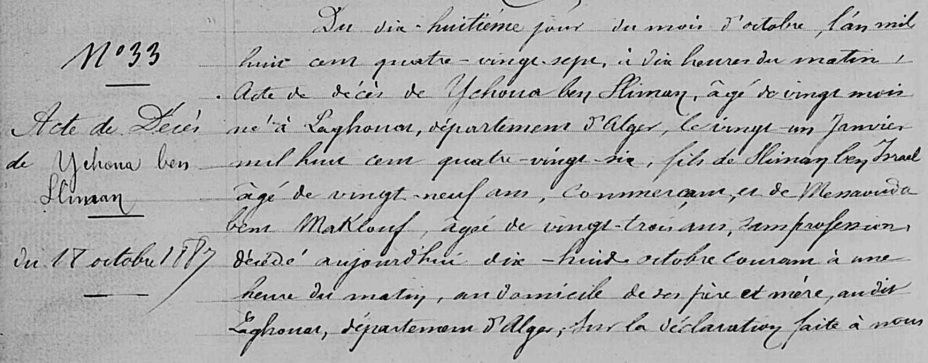 N° 33
Acte de Décès
de Ychoua ben
Sliman
du 18 octobre 1887
Du dix-huitième jour du mois d'octobre, l'an mil
huit cent quatre-vingt-sept, à dix heures du matin,
Acte de décès de Ychoua ben Sliman, âgé de vingt mois
né à Laghouat, département d'Alger, le vingt-un Janvier
mil huit cent quatre-vingt-six, fils de Sliman ben Israel
âgé de vingt-neuf ans, commerçant, et de Messaouda
bent Maklouf, âgée de vingt-trois ans, sans profession,
décédé aujourd'hui dix-huit octobre courant à une
heure du matin, au domicile de ses père et mère, audit
Laghouat, département d'Alger, Sur la déclaration faite à nous